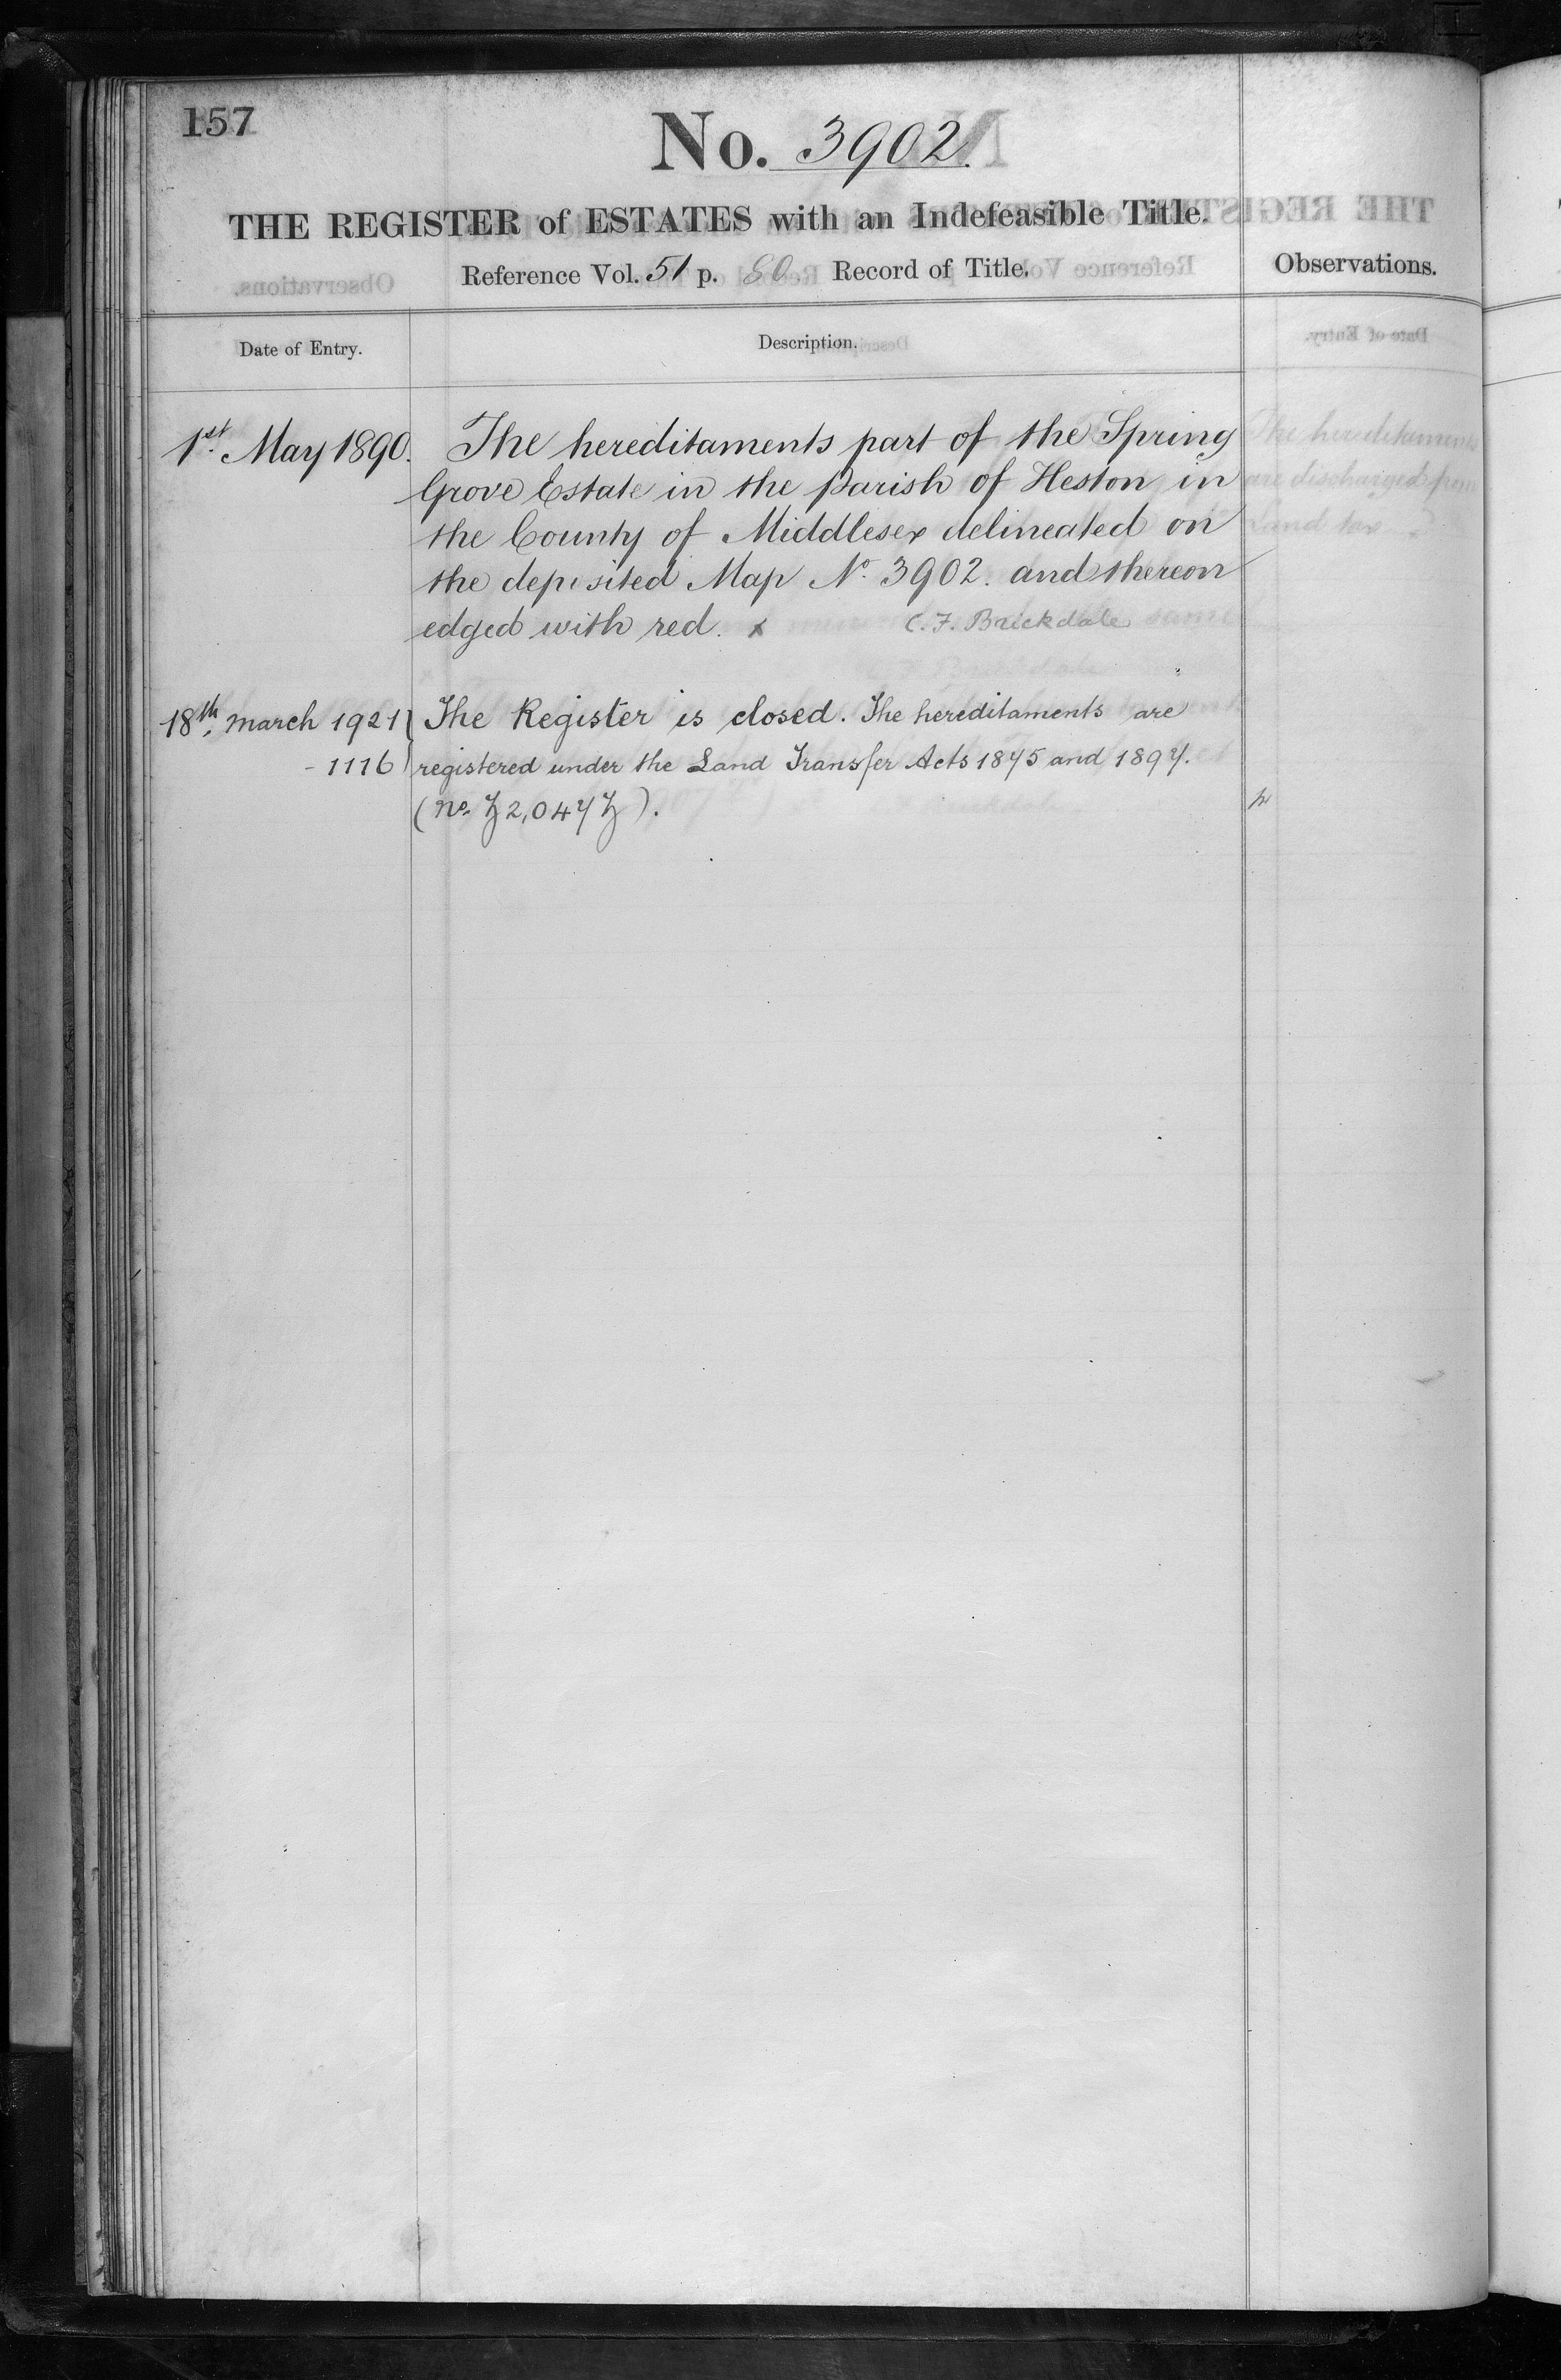 157
No. 3902.
THE REGISTER of ESTATES with an Indefeasible Title.
Reference Vol. 51 p. 80 Record of Title.
Observations.
Date of Entry.
Description.
1st. May 1890.
The hereditaments part of the Spring
Grove Estate in the Parish of Heston in
the County of Middlesex delineated on
the deposited Map No. 3902. and thereon
edged with red. x C. F. Brickdale
The hereditaments
are discharged from
Land tax
18th. March 1921
- 1116
The Register is closed. The hereditaments are
registered under the Land Transfer Acts 1875 and 1897.